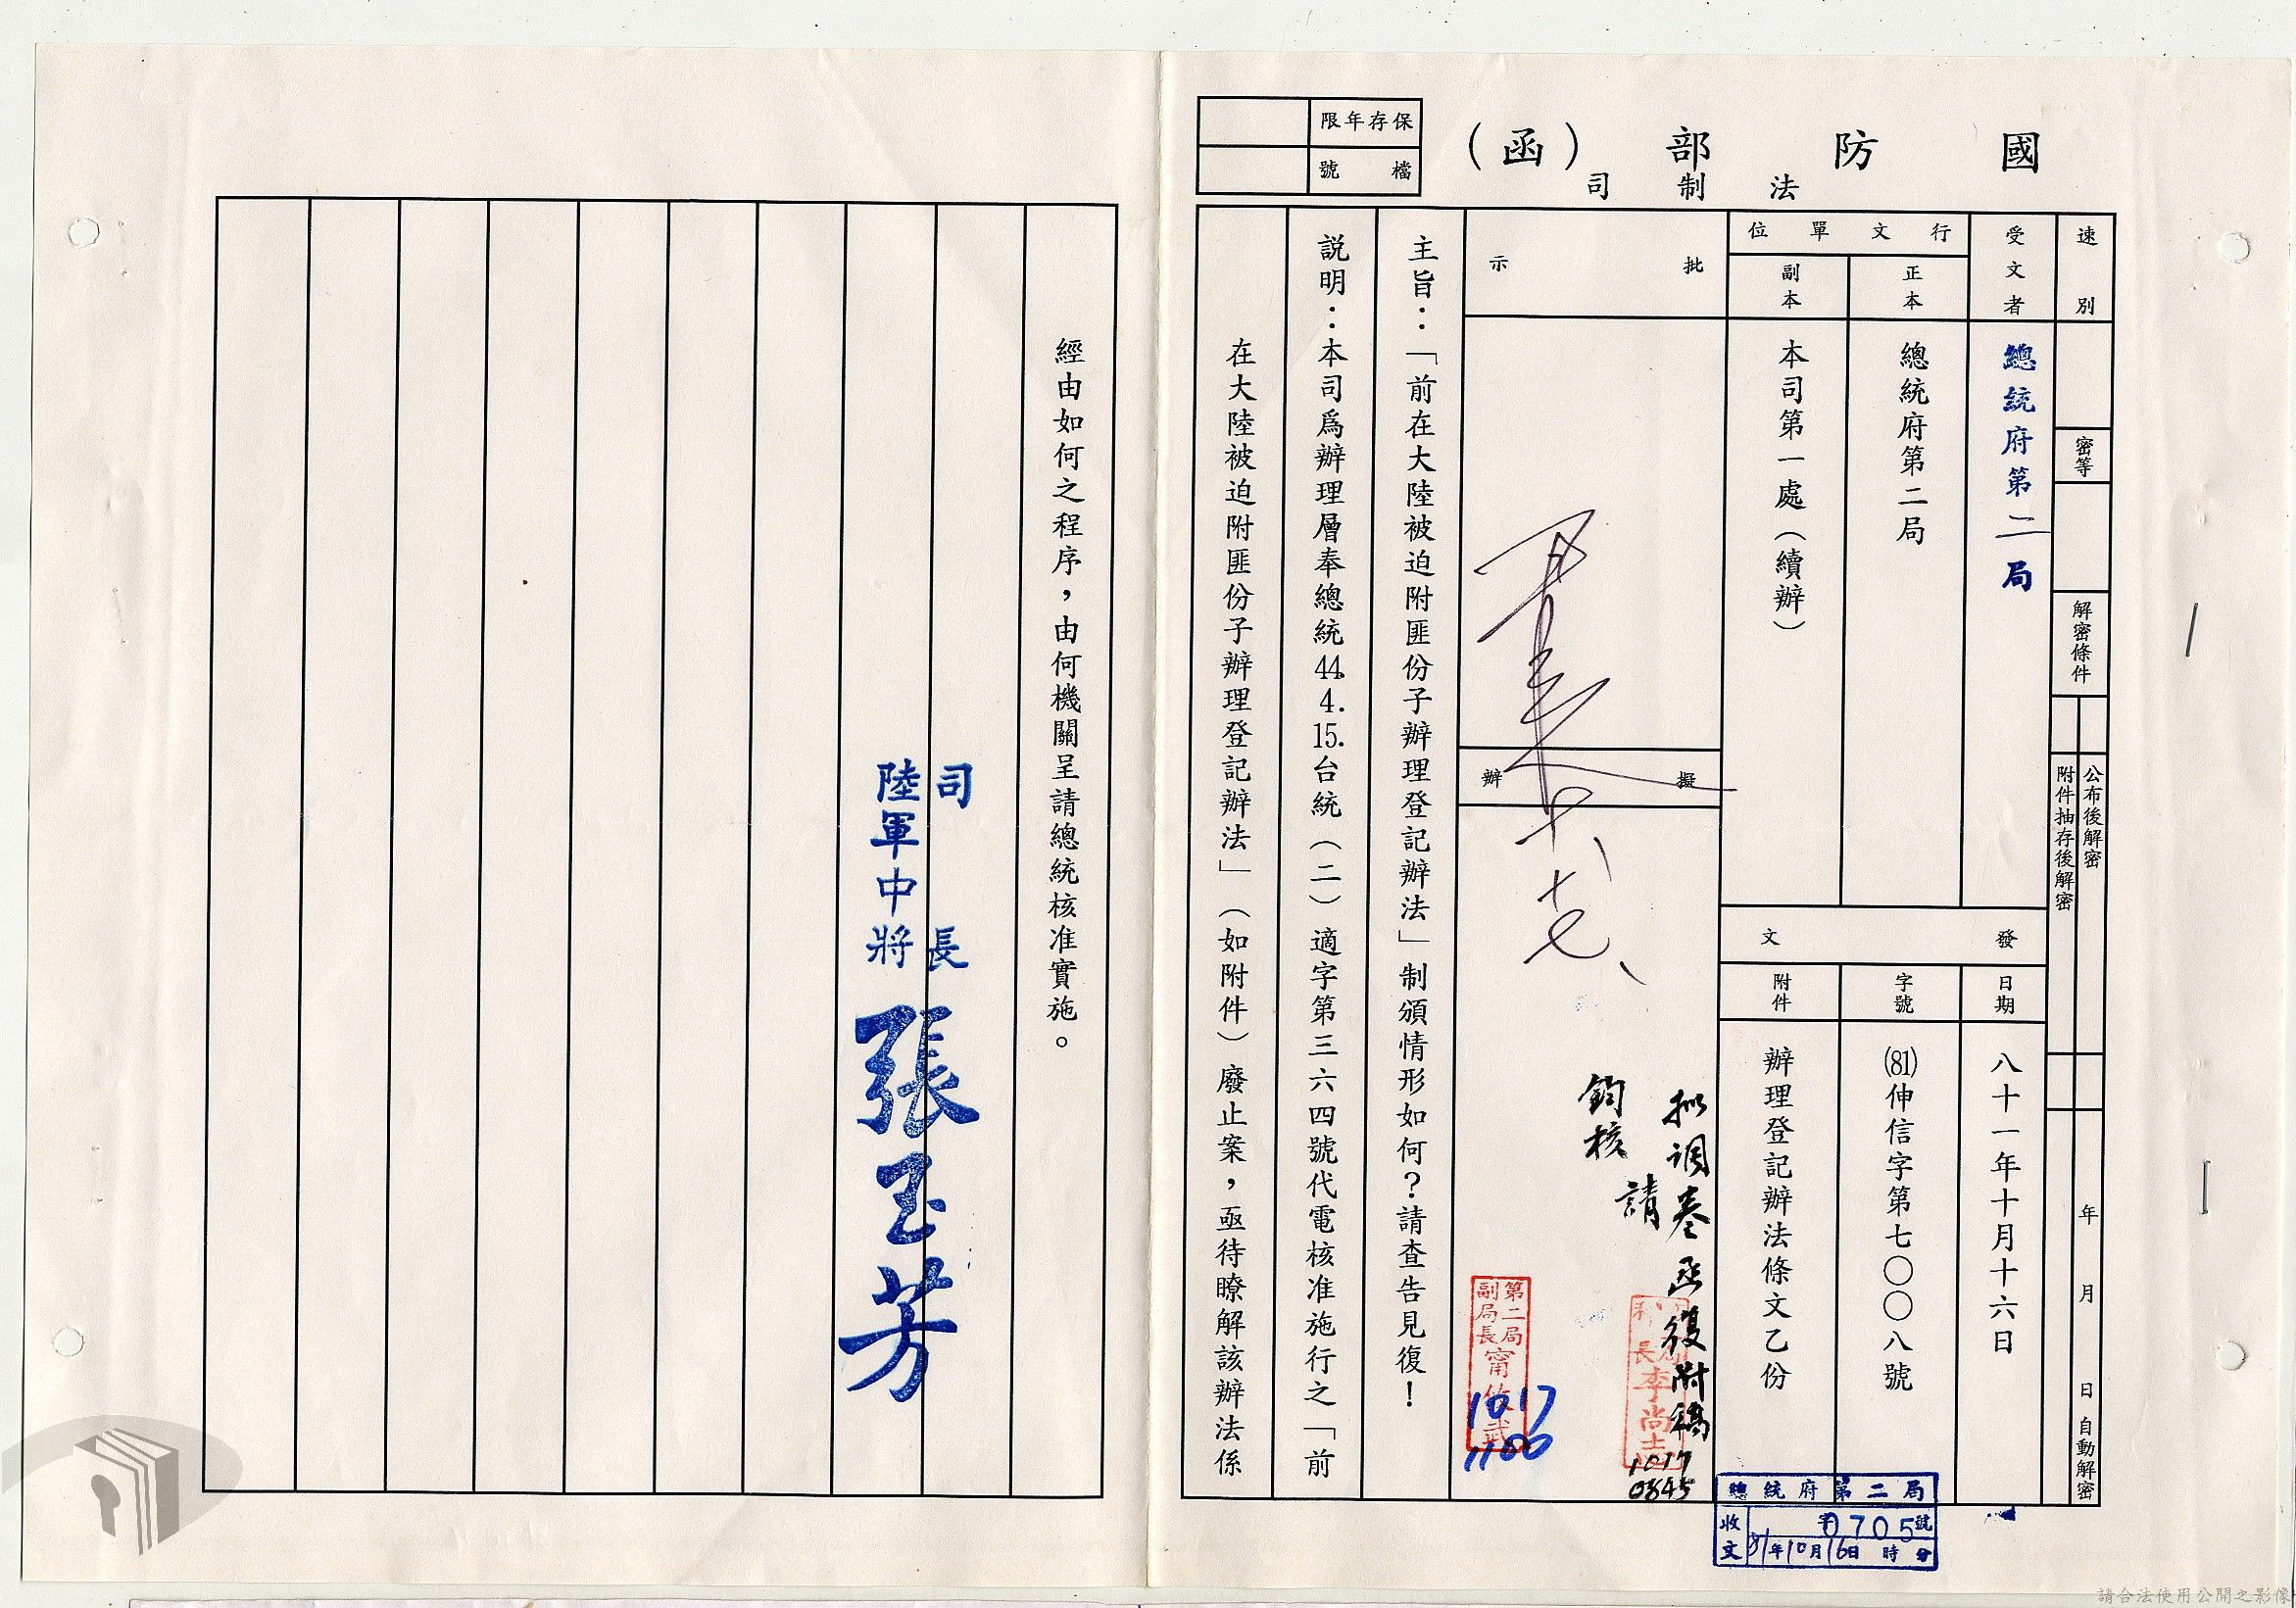 國防部（函）
法制司
保存年限
檔號
速別
密等
解密條件
公布後解密
附件抽存後解密
年月日自動解密
受文者
總統府第二局
行文單位
正本
總統府第二局
副本
本司第一處（續辦）
發文
日期
八十一年十月十六日
字號
(81)伸信字第七〇〇八號
附件
辦理登記辦法條文乙份
批示
十、十七、
擬辦
拟調卷函復附稿
請
鈞核
1017
0845
李尚
第二局
副局長
1017
1100
主旨：「前在大陸被迫附匪份子辦理登記辦法」制頒情形如何？請查告見復！
説明：本司爲辦理層奉總統44.4.15.台統（二）適字第三六四號代電核准施行之「前
在大陸被迫附匪份子辦理登記辦法」（如附件）廢止案，亟待瞭解該辦法係
經由如何之程序，由何機關呈請總統核准實施。
司長
陸軍中將
張玉芳
總統府第二局
收文
字0705號
81年10月16日 時 分
請合法使用公開之影像